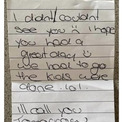 I didn't/couldn't
see you :( I hope
you had a
great day :)
I had to go
the kids were
alone. lol!
I'll call you
tomorrow!